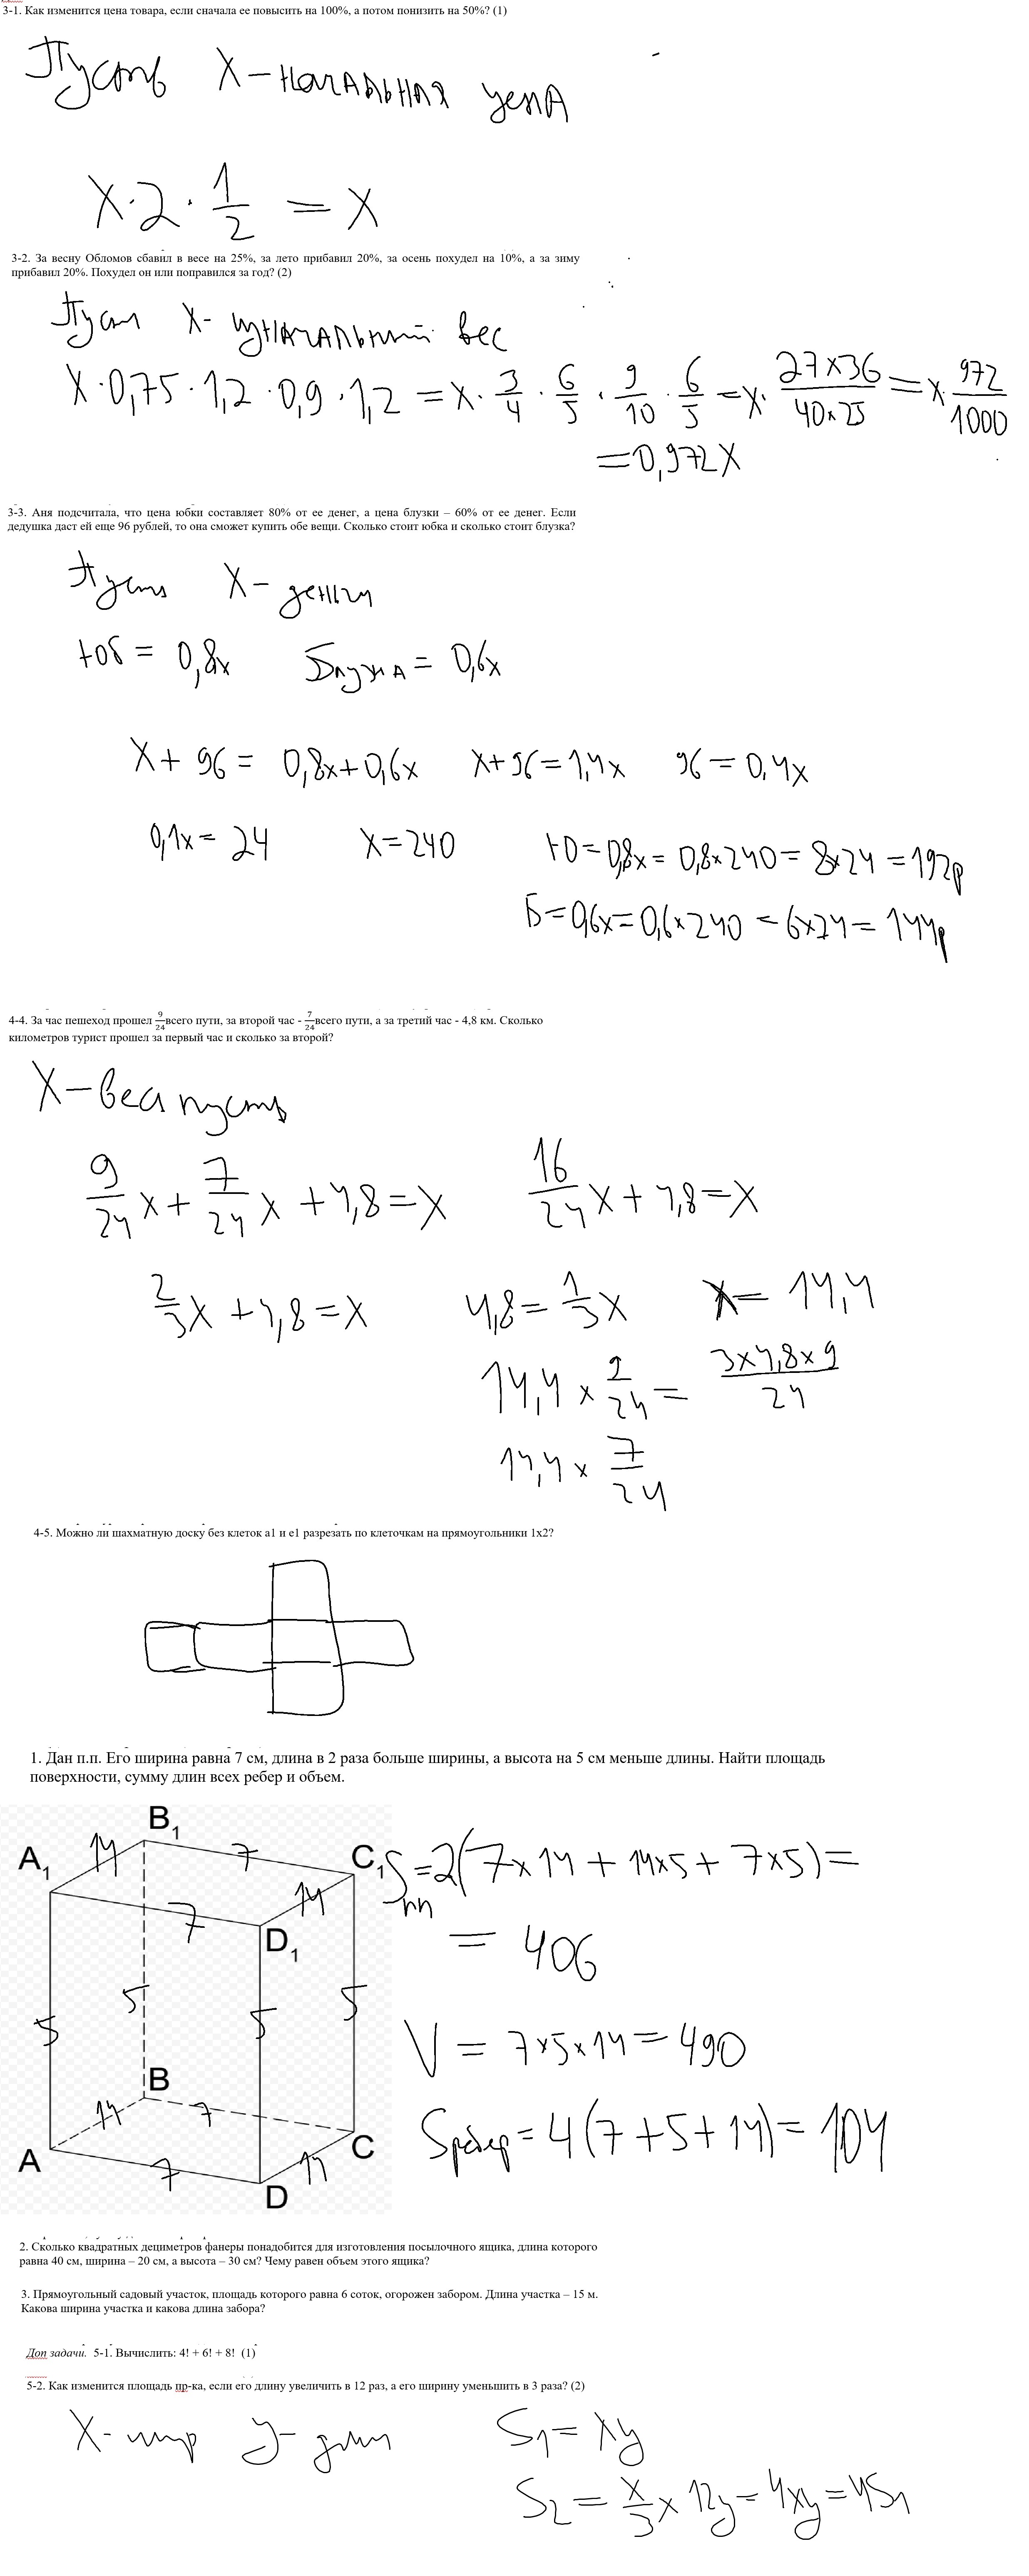 3-1. Как изменится цена товара, если сначала ее повысить на 100%, а потом понизить на 50%? (1)
Пусть X – начальная цена
X · 2 · 1/2 = X
3-2. За весну Обломов сбавил в весе на 25%, за лето прибавил 20%, за осень похудел на 10%, а за зиму
прибавил 20%. Похудел он или поправился за год? (2)
X - изначальный вес
X · 0,75 · 1,2 · 0,9 · 1,2 = X · 3/4 · 6/5 · 9/10 · 6/5 = X · 27×36/40×25 = X · 972/1000
= 0,972X
3-3. Аня подсчитала, что цена юбки составляет 80% от ее денег, а цена блузки – 60% от ее денег. Если
дедушка даст ей еще 96 рублей, то она сможет купить обе вещи. Сколько стоит юбка и сколько стоит блузка?
Пусть X – деньги
Юб = 0,8x Блузка = 0,6x
X + 96 = 0,8x + 0,6x x + 96 = 1,4x 96 = 0,4x
0,1x = 24 x = 240 Ю = 0,8x = 0,8×240 = 8×24 = 192р
Б = 0,6x = 0,6×240 = 6×24 = 144р
4-4. За час пешеход прошел 9/24 всего пути, за второй час - 7/24 всего пути, а за третий час - 4,8 км. Сколько
километров турист прошел за первый час и сколько за второй?
X – весь
9/24 x + 7/24 x + 4,8 = x 16/24 x + 4,8 = x
2/3 x + 4,8 = x 4,8 = 1/3 x x = 14,4
14,4 × 9/24 = 3×4,8×9/24
14,4 × 7/24
4-5. Можно ли шахматную доску без клеток a1 и e1 разрезать по клеточкам на прямоугольники 1x2?
1. Дан п.п. Его ширина равна 7 см, длина в 2 раза больше ширины, а высота на 5 см меньше длины. Найти площадь
поверхности, сумму длин всех ребер и объем.
B1
14 7
A1 C1 Sпп = 2(7×14 + 14×5 + 7×5) =
7 14
D1 = 406
5 5 5 5
V = 7×5×14 = 490
B
14 7 Sребер = 4(7 + 5 + 14) = 104
A C
7 14
D
2. Сколько квадратных дециметров фанеры понадобится для изготовления посылочного ящика, длина которого
равна 40 см, ширина – 20 см, а высота – 30 см? Чему равен объем этого ящика?
3. Прямоугольный садовый участок, площадь которого равна 6 соток, огорожен забором. Длина участка – 15 м.
Какова ширина участка и какова длина забора?
Доп задачи. 5-1. Вычислить: 4! + 6! + 8! (1)
5-2. Как изменится площадь пр-ка, если его длину увеличить в 12 раз, а его ширину уменьшить в 3 раза? (2)
X - шир y - длин S1 = xy
S2 = x/3 × 12y = 4xy = 4S1